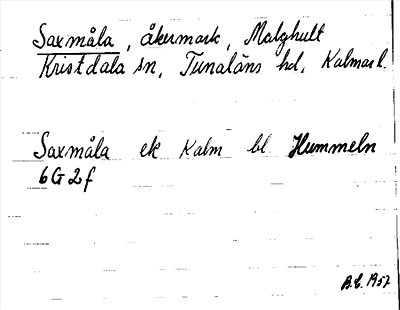 Saxmåla, åkermark, Malghult
Kristdala sn, Tunaläns hd, Kalmar l.
Saxmåla ek Kalm bl Hummeln
6G2f
B.E. 1957